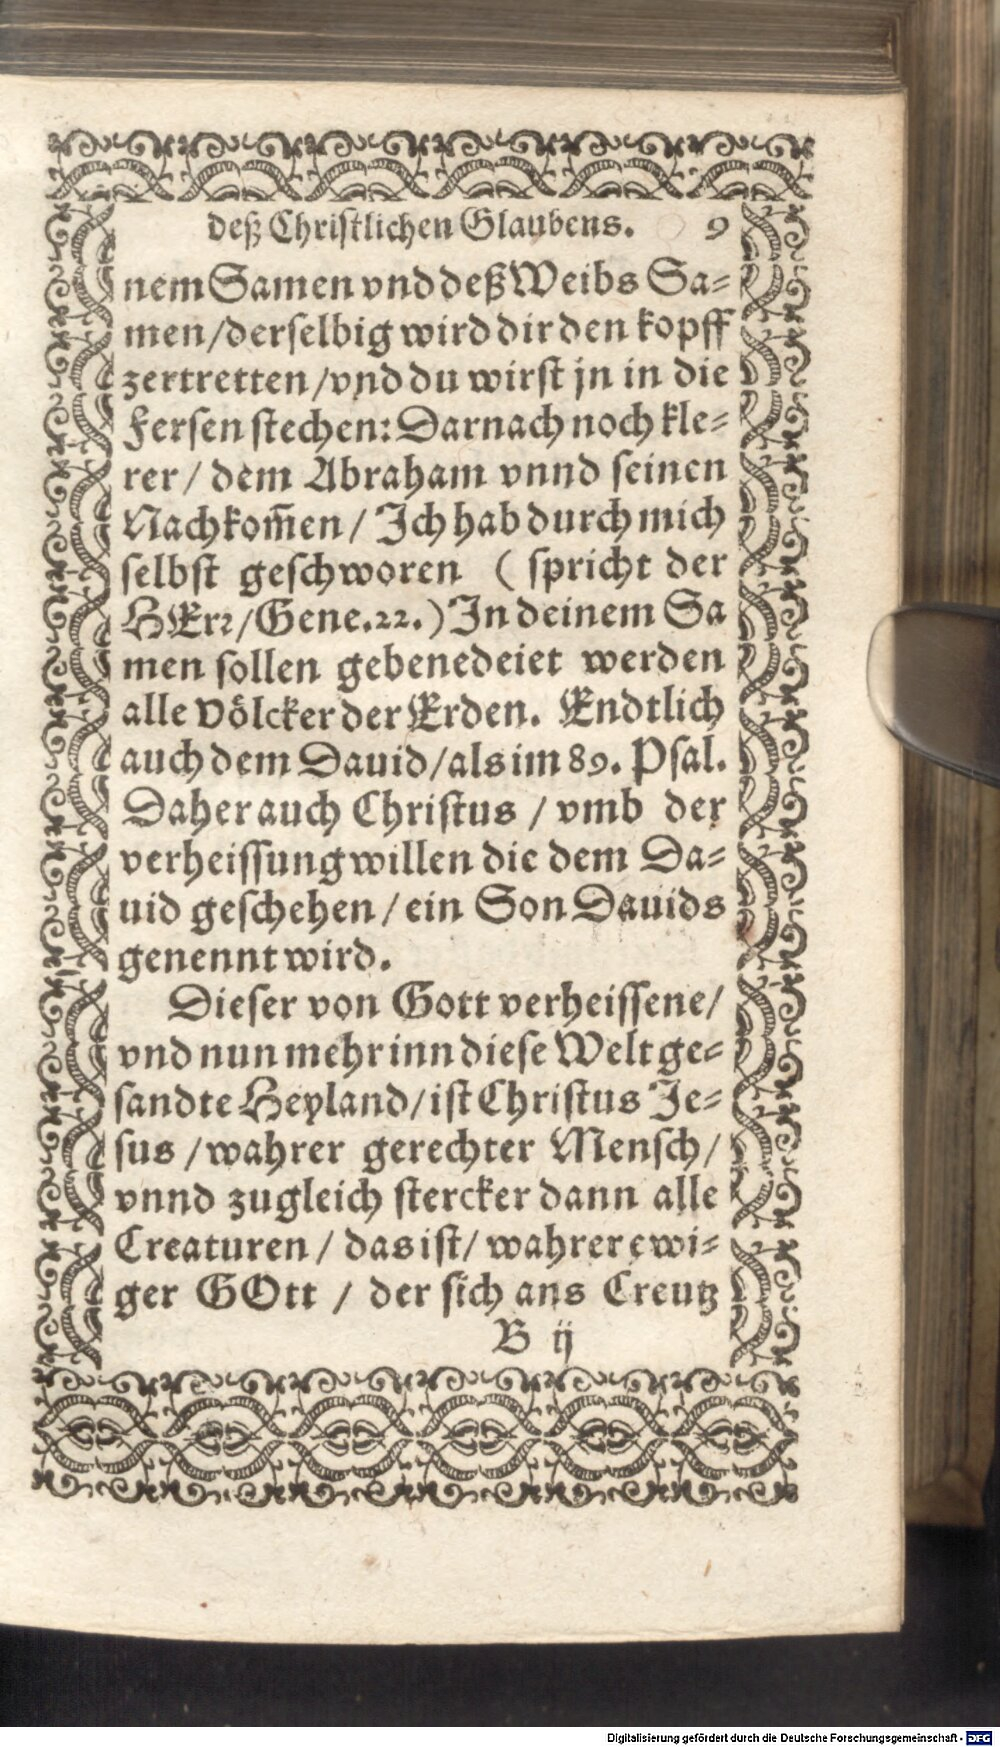 deß Christlichen Glaubens. 9
nem Samen vnd deß Weibs Sa⸗
men/derselbig wird dir den kopff
zertretten/vnd du wirst jn in die
Fersen stechen: Darnach noch kle⸗
rer/ dem Abraham vnnd seinen
Nachkom̃en/ Ich hab durch mich
selbst geschworen ( spricht der
HErꝛ/Gene.22.) In deinem Sa
men sollen gebenedeiet werden
alle Völcker der Erden. Endtlich
auch dem Dauid/als im 89. Psal.
Daher auch Christus / vmb der
verheissung willen die dem Da⸗
uid geschehen/ein Son Dauids
genennt wird.
Dieser von Gott verheissene/
vnd nun mehr inn diese Welt ge⸗
sandte Heyland/ist Christus Je⸗
sus /wahrer gerechter Mensch/
vnnd zugleich stercker dann alle
Creaturen/ das ist/ wahrer ewi⸗
ger GOtt / der sich ans Creutz
B ij
Digitalisierung gefördert durch die Deutsche Forschungsgemeinschaft - DFG